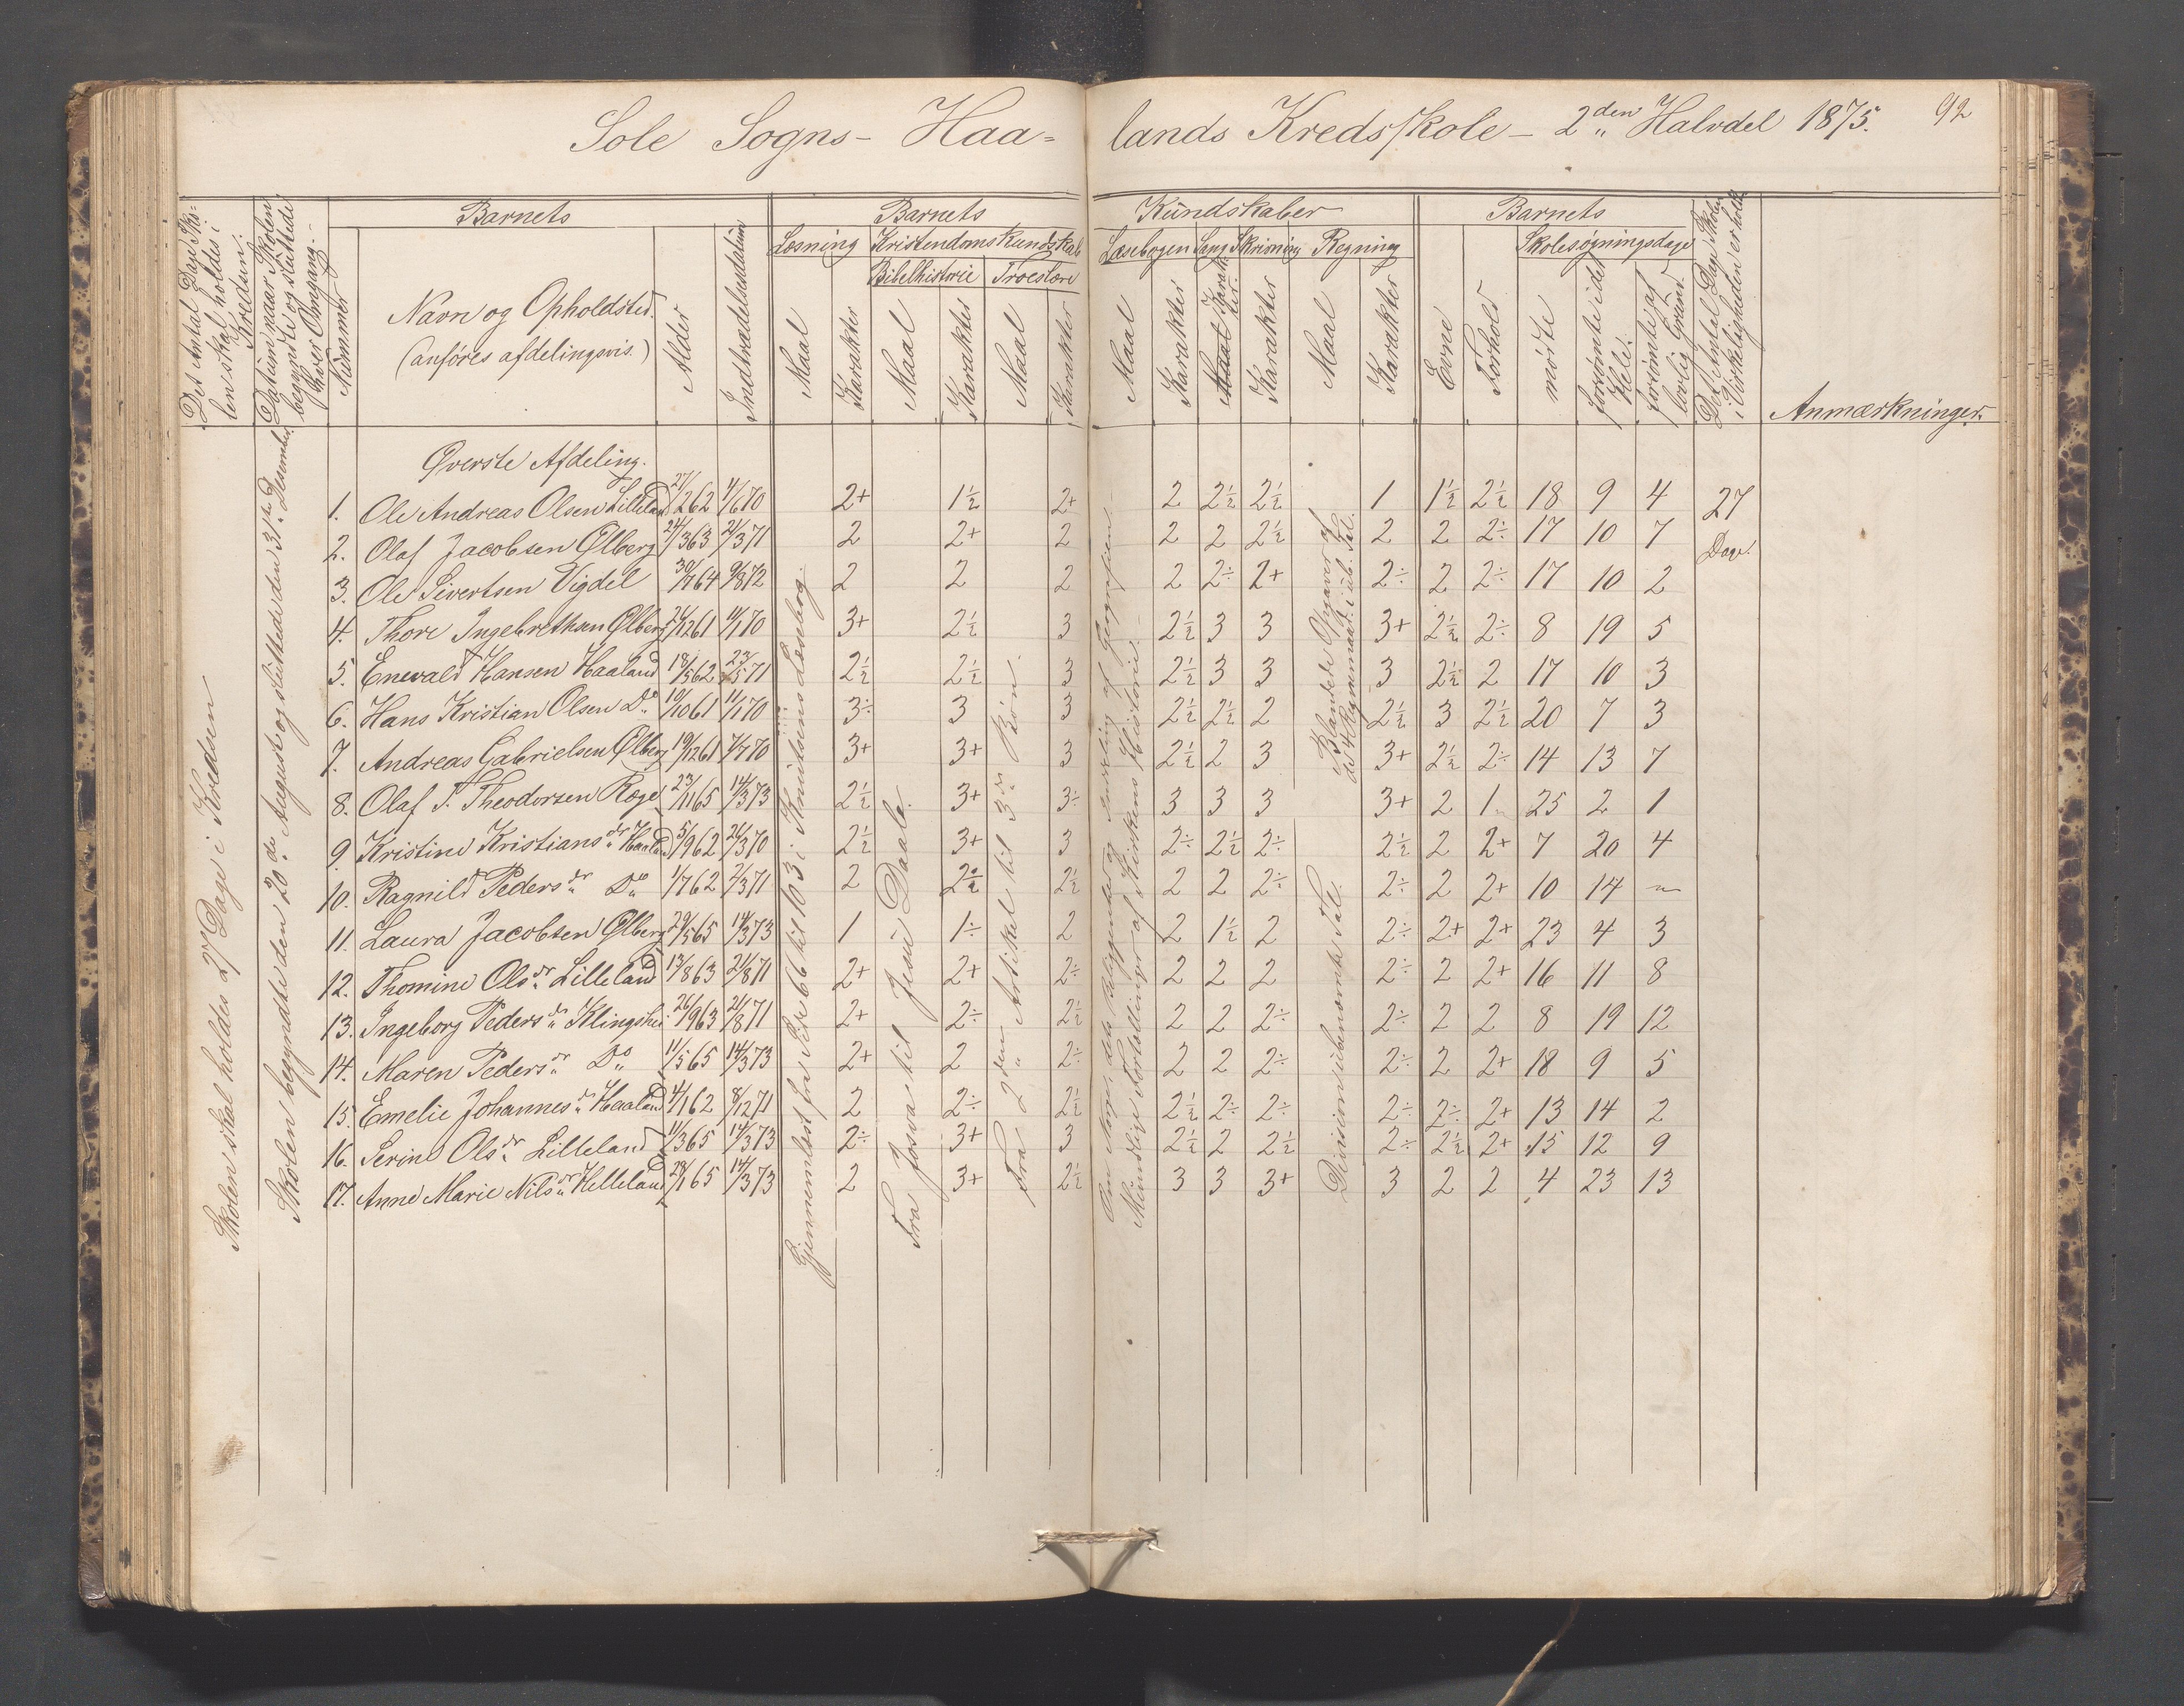 Sole Sogns - Haa= lands Kredsskole - 2den Halvdel 1875. 92
Det Antal Dage Sko=
len skal holdes i
Kredsen.
Datum naar Skolen
begyndte og sluttede
hver Omgang.
Nummer
Barnets
Navn og Opholdsted.
(anføres afdelingsvis.)
Alder
Indtrædelsesdatum
Barnets Kundskaber
Læsning
Maal
Karakter
Kristendomskundskab
Bibelhistorie
Maal
Karakter
Troeslære
Maal
Karakter
Læsebogen
Maal
Karakter
Sang
Maal
Karakter
Skrivning
Karakter
Regning
Maal
Karakter
Barnets
Evne
Forhold
Skolesøgningsdage
mødte
forsømte i det
Hele.
forsømte af
lovlig Grund.
Det Antal Dage Skolen
i Virkeligheden er holdt
Anmærkninger.
Skolen skal holdes 27 Dage i Kredsen
Skolen begyndte den 20de August og sluttede den 31te Desember.
Gjennemlæst fra Side 66 til 103 i Knutsens Læsebog.
Fra Josva til Jesu Daab.
Fra 2den Artikel til 3die Bøn.
Mundtlige Fortællinger af Kirkens Historie
Division i ubenævnte Tal.
Blandede Opgaver af
de 4 Regnemaad. i ub. Tal.
Øverste Afdeling.
1. Ole Andreas Olsen Lilleland 27/2 62 4/6 70 2+ 1½ 2+ 2 2½ 2½ 1 1½ 2½ 18 9 4 27
2. Olaf Jacobsen Ølberg 24/3 63 21/3 71 2 2+ 2 2 2 2½ 2 2 2÷ 17 10 7 Dage.
3. Ole Sivertsen Vigdel 30/7 64 9/8 72 2 2 2 2 2÷ 2+ 2÷ 2 2÷ 17 10 2
4. Thore Ingebrethsen Ølberg 21/12 61 11/1 70 3+ 2½ 3 2½ 3 3 3+ 2½ 2÷ 8 19 5
5. Enevald Hansen Haaland 18/5 62 23/5 71 2½ 2½ 3 2½ 3 3 3 2½ 2 17 10 3
6. Hans Kristian Olsen Do 10/10 61 11/1 70 3÷ 3 3 2½ 2½ 2 2½ 3 2½ 20 7 3
7. Andreas Gabrielsen Ølberg 19/12 61 7/7 70 3+ 3+ 3 2½ 2 3 3+ 2½ 2÷ 14 13 7
8. Olaf T. Theodorsen Røge 23/11 65 14/3 73 2½ 3+ 3÷ 3 3 3 3+ 2 1 25 2 1
9. Kristine Kristiansdr Haaland 5/9 62 26/3 70 2½ 3+ 3 2÷ 2½ 2÷ 2½ 2 2+ 7 20 4
10. Ragnild Pedersdr Do 1/7 62 2/3 71 2 2½ 2½ 2 2 2÷ 2÷ 2 2+ 10 14 "
11. Laura Jacobsen Ølberg 29/5 65 14/3 73 1 1÷ 2 2 1½ 2 2÷ 2+ 2+ 23 4 3
12. Thomine Olsdr Lilleland 13/8 63 21/8 71 2+ 2+ 2÷ 2 2 2 2÷ 2 2+ 16 11 8
13. Ingeborg Pedersdr Klingshei 26/9 63 21/8 71 2+ 2÷ 2½ 2 2 2÷ 2÷ 2 2 8 19 12
14. Maren Pedersdr Do 11/5 65 14/3 73 2+ 2 2÷ 2 2 2÷ 2÷ 2 2+ 18 9 5
15. Emelie Johannesdr Haaland 4/1 62 8/12 71 2 2÷ 2½ 2½ 2÷ 2÷ 2÷ 2÷ 2+ 13 14 2
16. Serine Olsdr Lilleland 11/3 65 14/3 73 2÷ 3+ 3 2½ 2 2½ 2÷ 2½ 2+ 15 12 9
17. Anne Marie Nilsdr Helleland 28/1 65 14/3 73 2 3+ 2½ 3 3 3+ 3 2 2 4 23 13